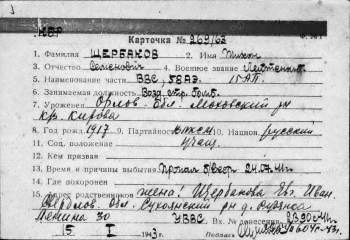 КБР
Карточка № 269/63
1. Фамилия ЩЕРБАКОВ 2. Имя Тихон
3. Отчество Семенович 4. Военное звание Лейтенант
5. Наименование части ВВС, 58АЭ. 15АП
6. Занимаемая должность Возд. стр. бомб.
7. Уроженец Орлов. обл. Моховский рн
кр. Кирова
8. Год рожд. 1917 9. Партийность влксм 10. Национ. русский
11. Соц. положение учащ.
12. Кем призван
13. Время и причины выбытия Пропал б/вест 24.07.41г.
14. Где похоронен
15. Адрес родственников жена: Щербакова Ев. Иван.
Свердлов. Обл. Сухоложский рн д. Рудяной
Ленина 30 УВВС Вх. № донесения 2390с-41г.
15 I 1943 г. Подпись